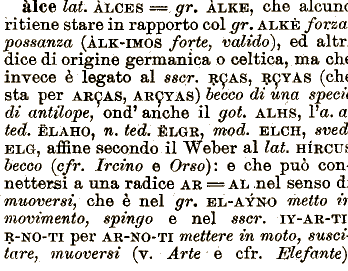 àlce lat. ÀLCES = gr. ÀLKE, che alcuno
ritiene stare in rapporto col gr. ALKÈ forza
possanza (ÀLK-IMOS forte, valido), ed altr
dice di origine germanica o celtica, ma che
invece è legato al sscr. ṚÇAS, ṚÇYAS (che
sta per ARÇAS, ARÇYAS) becco di una speci
di antilope, ond' anche il got. ALHS, l'a. a
ted. ËLAHO, n. ted. ËLGR, mod. ELCH, sved
ELG, affine secondo il Weber al lat. HÍRCUS
becco (cfr. Ircino e Orso): e che può con
nettersi a una radice AR = AL nel senso d
muoversi, che è nel gr. EL-AÝNO metto in
movimento, spingo e nel sscr. IY-AR-TI
Ṛ-NO-TI per AR-NO-TI mettere in moto, susci
tare, muoversi (v. Arte e cfr. Elefante)